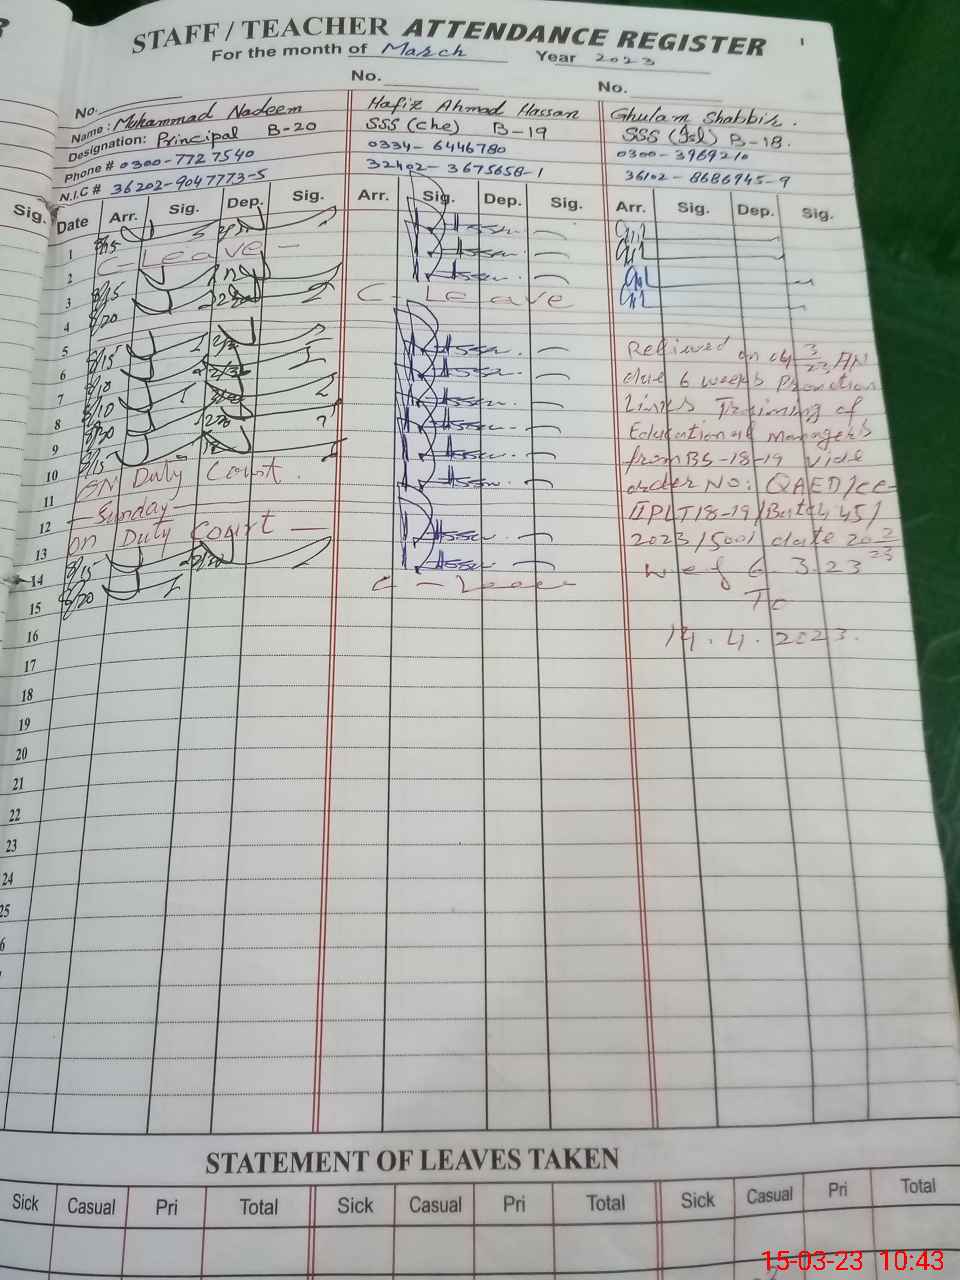 STAFF / TEACHER ATTENDANCE REGISTER
For the month of March Year 2023
No. No. No.
Name: Muhammad Nadeem
Designation: Principal B-20
Phone # 0300-7727540
N.I.C # 36202-9047773-5
Hafiz Ahmad Hassan
SSS (che) B-19
0334-6446780
32402-3675658-1
Ghulam Shabbir.
SSS (Isl) B-18.
0300-3969210
36102-8686945-9
Sig.
Date Arr. Sig. Dep. Sig. Arr. Sig. Dep. Sig. Arr. Sig. Dep. Sig.
1 8/15
2 C-Leave-
3 8/15
4 8/20 C-Leave
5
6 8/15
7 8/10
8 8/10
9 8/20
10 8/15
11 ON Duty Court.
12 Sunday
13 on Duty Court
14 8/15
15 8/20 C-Leave
16
17
18
19
20
21
22
23
24
25
6
Relieved on 04 3/23 AN
due 6 weeks Promotion
Links Training of
Educational Managers
from BS-18-19 vide
order No: QAED/CC-
II PLT18-19/Batch45/
2023/5001 date 20 2/23
wef 6 3.23
To
14.4.2023.
STATEMENT OF LEAVES TAKEN
Sick Casual Pri Total Sick Casual Pri Total Sick Casual Pri Total
15-03-23 10:43